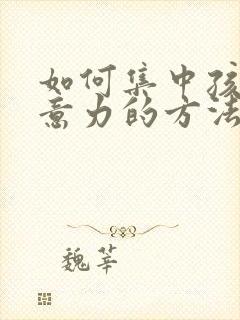 如何集中孩
意力的方法
魏莘